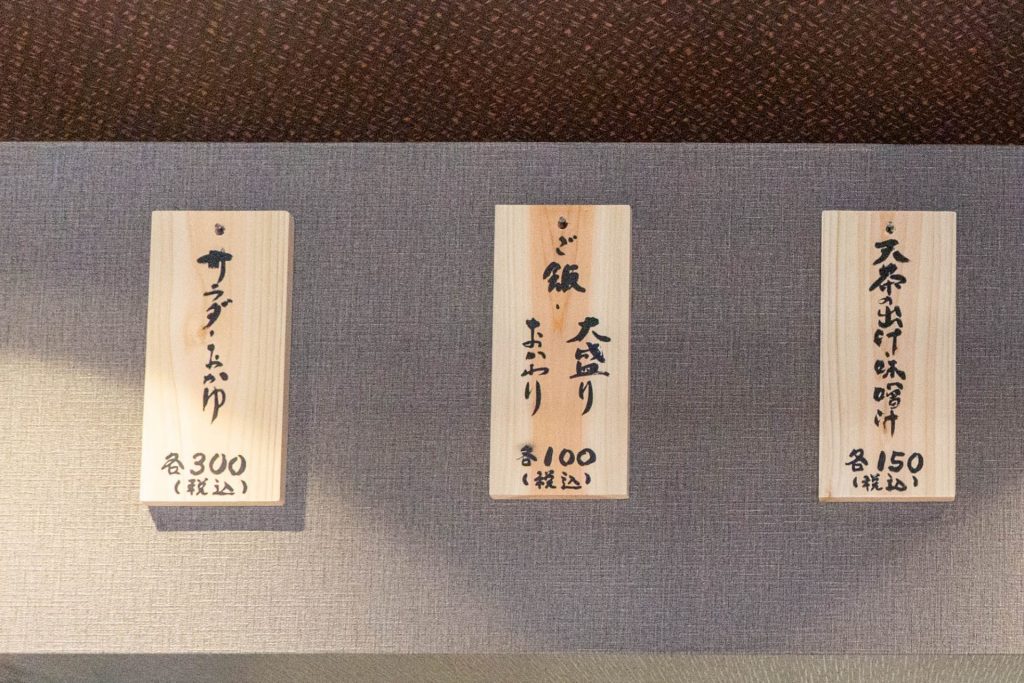 サラダ・おかゆ
各300
(税込)
ご飯・
大盛り
おかわり
各100
(税込)
天茶の出汁・味噌汁
各150
(税込)